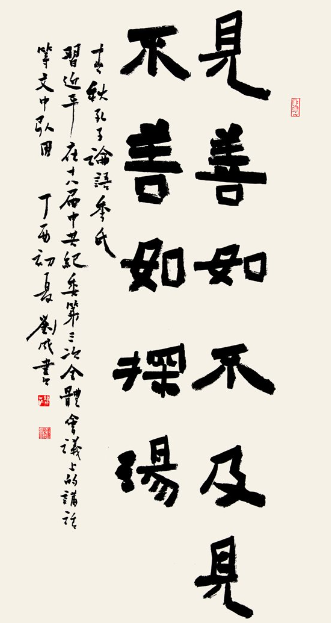 見善如不及見
不善如探湯
春秋孔子論語季氏
習近平在十八届中共紀委第三次全體會議上的講話
等文中引用 丁酉初夏 劉成書